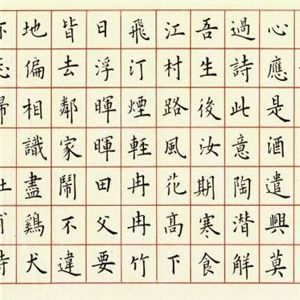 心應是酒遣興莫
過詩此意陶潛解
吾生後汝期寒食
江村路風花高下
飛汀煙輕冉冉竹
日浮暉暉田父要
皆去鄰家鬧不違
地偏相識盡鷄犬